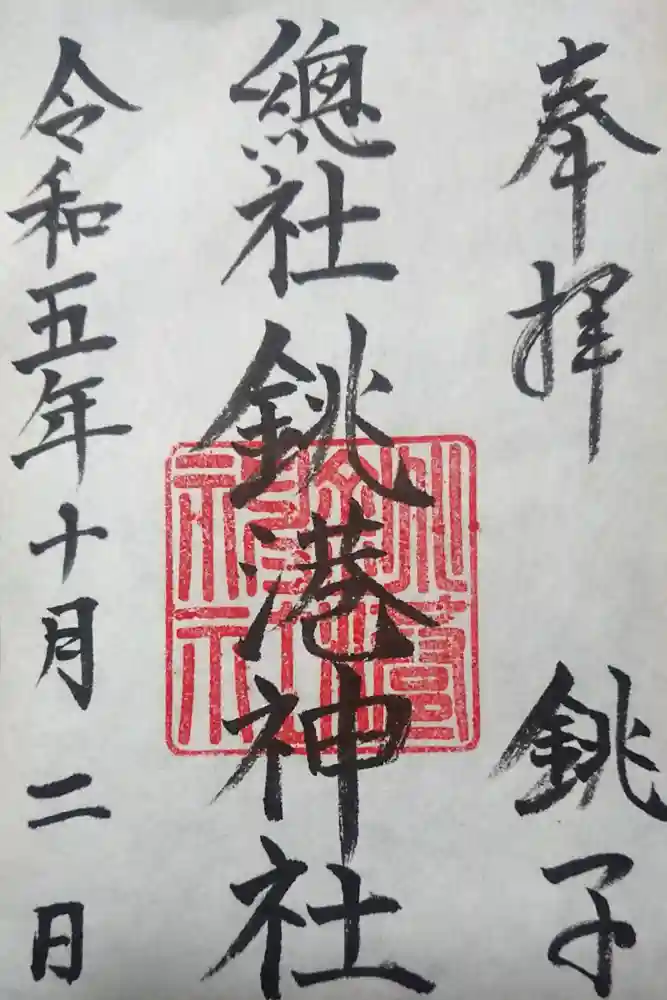 奉拝
銚子
總社
銚港神社
令和五年十月二日